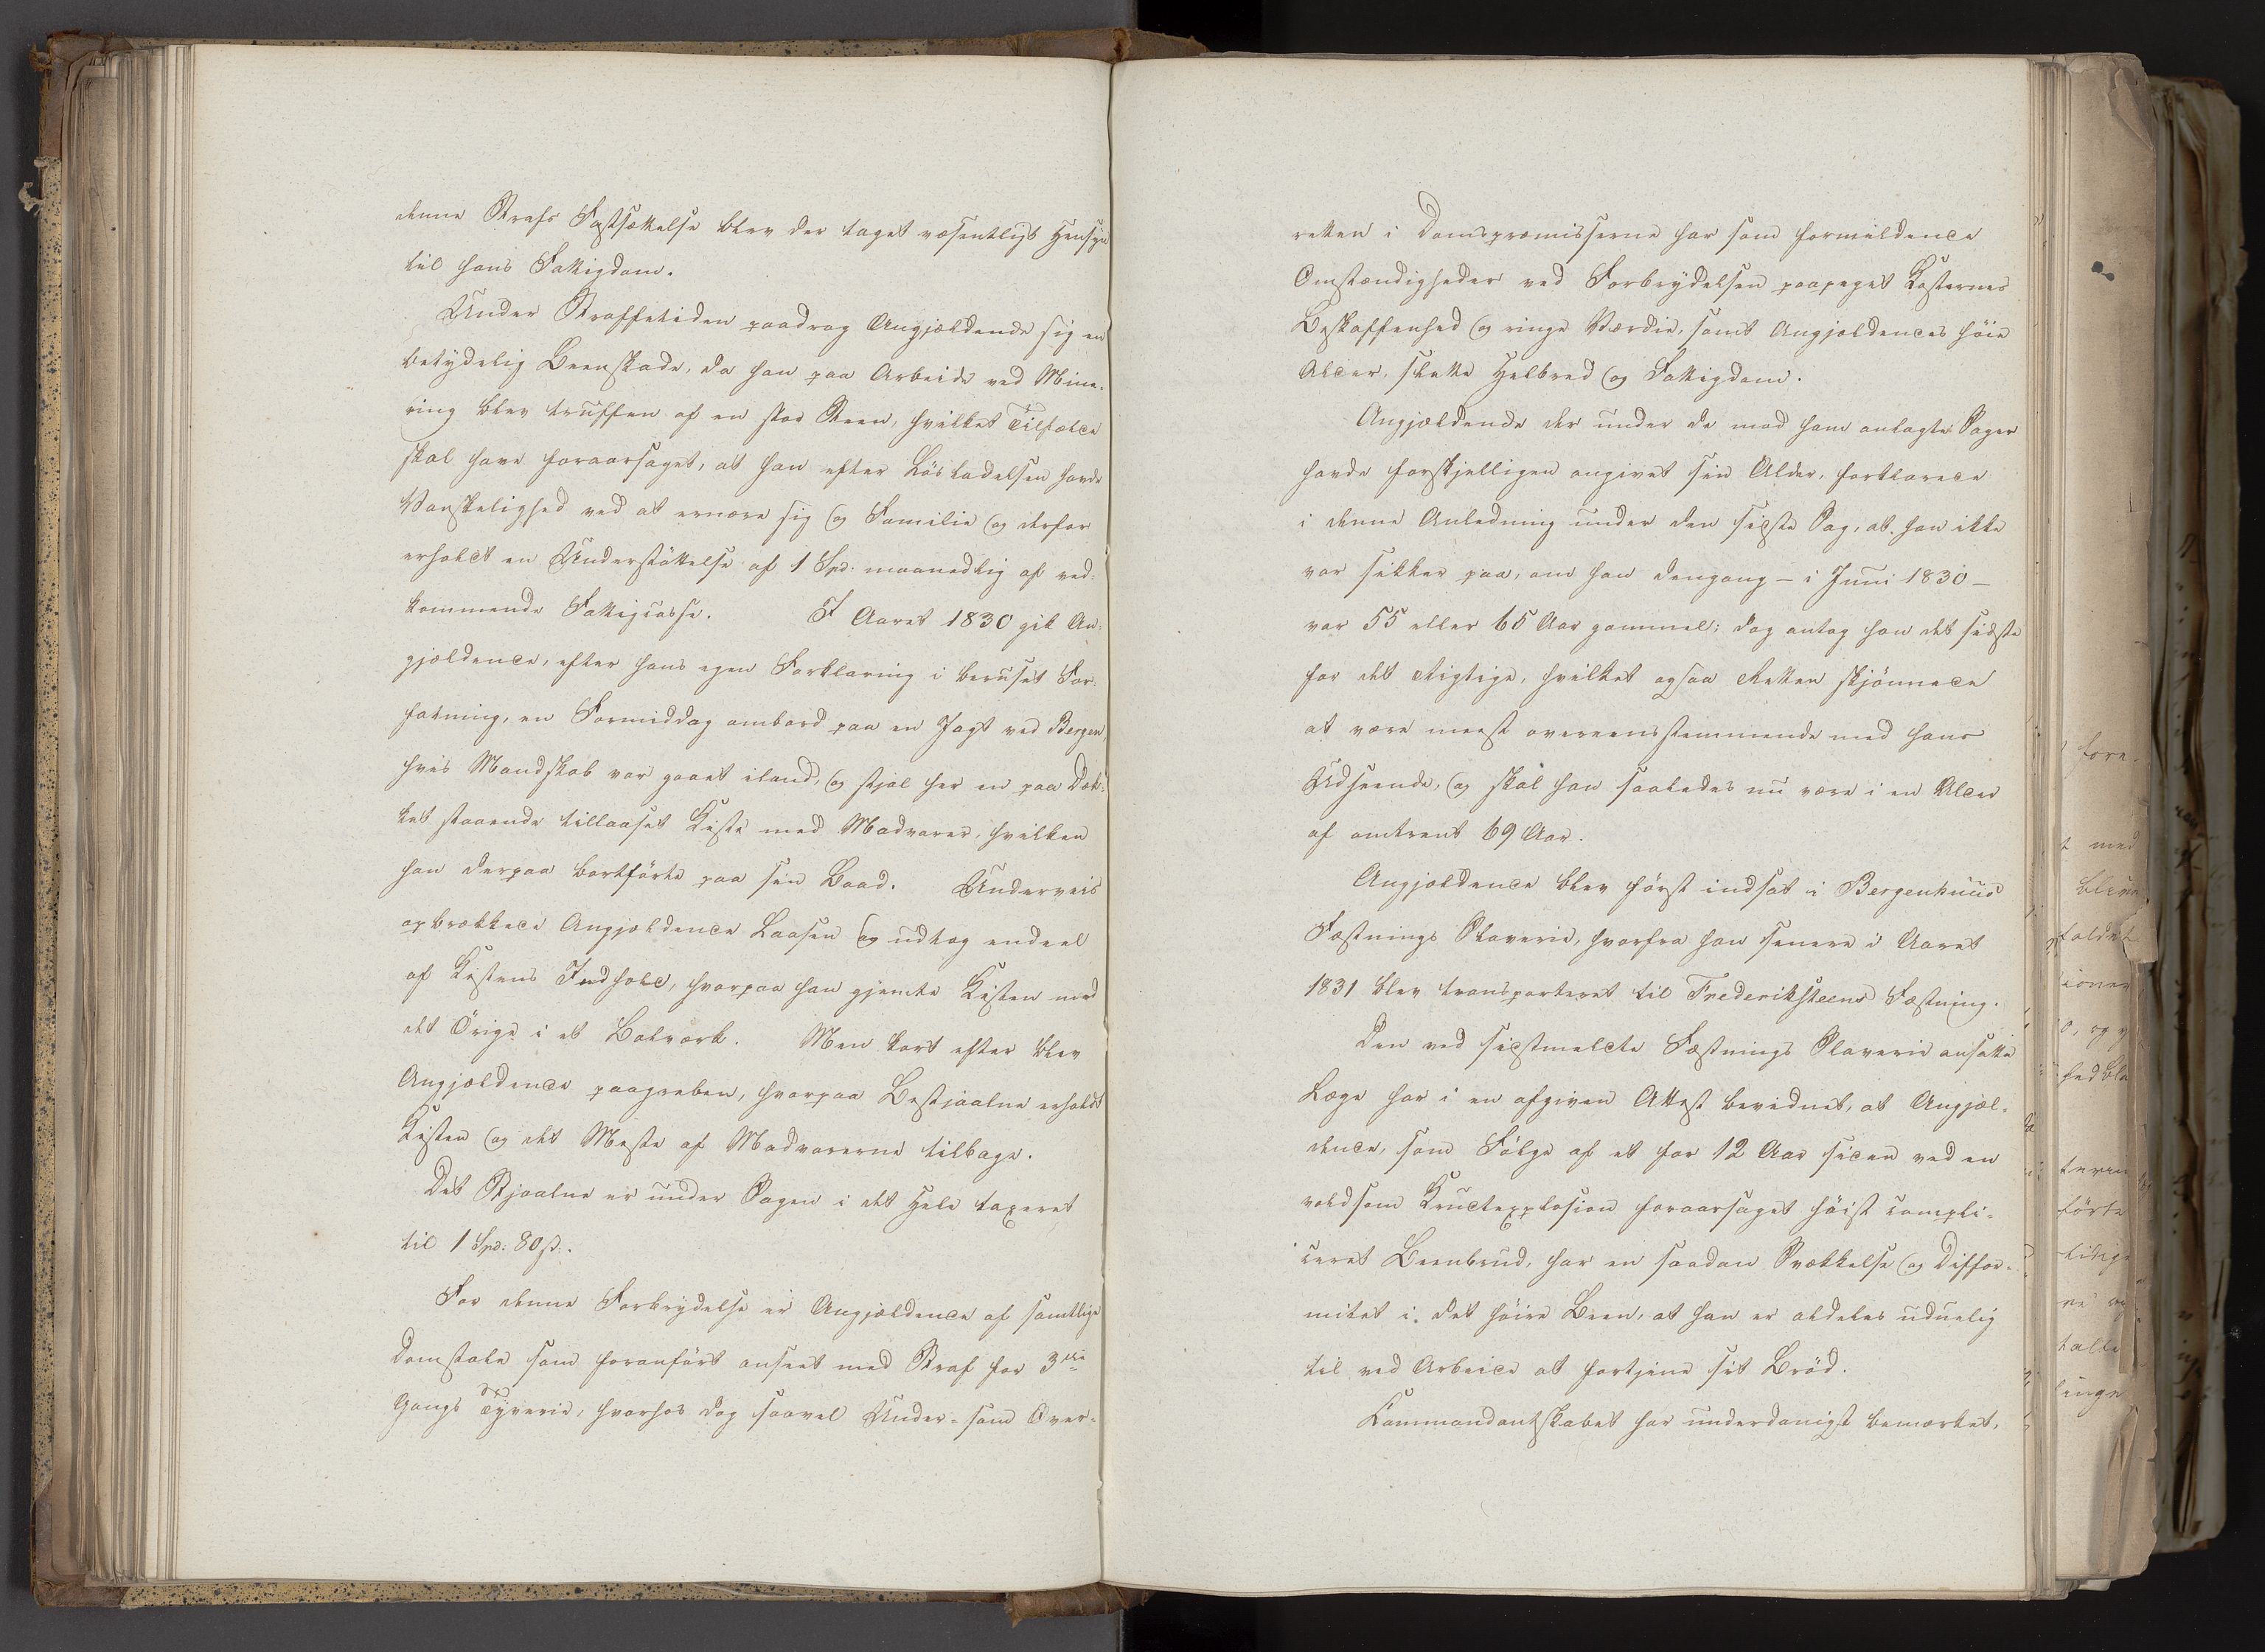 denne Strafs Fastsættelse blev der taget væsentligt Hensyn
til hans Fattigdom.
Under Straffetiden paadrog Angjældende sig en
betydelig Beenskade, da han paa Arbeide ved Mine-
ring blev truffen af en stor Steen, hvilket Tilfælde
skal have foraarsaget, at han efter Løsladelsen havde
Vanskelighed ved at ernære sig og Familie og derfor
erholdt en Understøttelse af 1 Spd: maanedlig af ved-
kommende Fattigcasse. I Aaret 1830 gik An-
gjældende, efter hans egen Forklaring i beruset For-
fatning, en Formiddag ombord paa en Jagt ved Bergen,
hvis Mandskab var gaaet iland, og stjal her en paa Dæk-
ket staaende tillaaset Kiste med Madvarer, hvilken
han derpaa bortførte paa sin Baad. Underveis
opbrækkede Angjældende Laasen og udtog endeel
af Kistens Indhold, hvorpaa han gjemte Kisten med
det Øvrige i et Bolværk. Men kort efter blev
Angjældende paagreben, hvorpaa Bestjaalne erholdt
Kisten og det Meste af Madvarerne tilbage.
Det Stjaalne er under Sagen i det Hele taxeret
til 1 Spd: 80 ß.
For denne Forbrydelse er Angjældende af samtlige
Domstole som foranført anseet med Straf for 3die
Gangs Tyverie, hvorhos dog saavel Under- som Over-
retten i Domspræmisserne har som formildende
Omstændigheder ved Forbrydelsen paapeget Kosternes
Beskaffenhed og ringe Værdie, samt Angjældendes høie
Alder, slette Helbred og Fattigdom.
Angjældende der under de mod ham anlagte Sager
havde forskjelligen angivet sin Alder, forklarede
i denne Anledning under den sidste Sag, at han ikke
var sikker paa, om han dengang – i Juni 1830 –
var 55 eller 65 Aar gammel; dog antog han det sidste
for det Rigtige, hvilket ogsaa Retten skjønnede
at være meest overeensstemmende med hans
Udseende, og skal han saaledes nu være i en Alder
af omtrent 69 Aar.
Angjældende blev først indsat i Bergenhuus
Fæstnings Slaverie, hvorfra han senere i Aaret
1831 blev transporteret til Frederiksteens Fæstning.
Den ved sidstmeldte Fæstnings Slaverie ansatte
Læge har i en afgiven Attest bevidnet, at Angjæl-
dende, som Følge af et for 12 Aar siden ved en
voldsom Krudtexplosion foraarsaget høist compli-
ceret Beenbrud, har en saadan Svækkelse og Diffor-
mitet i det høire Been, at han er aldeles uduelig
til ved Arbeide at fortjene sit Brød.
Kommandantskabet har underdanigst bemærket,